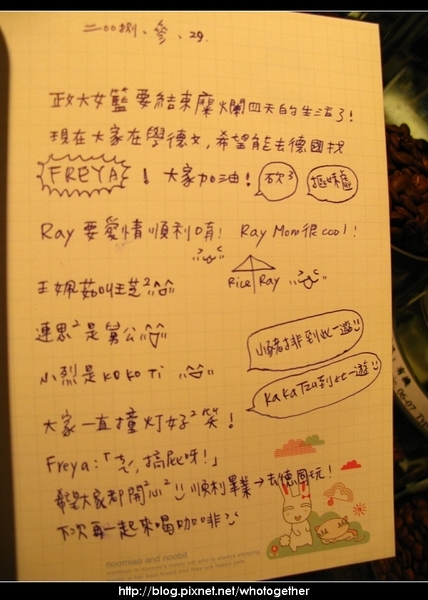 二〇〇捌、參、29.
政大女籃要結束糜爛四天的生活了!
現在大家在學德文,希望能去德國找
FREYA! 大家加油! 砍3
Ray 要愛情順利唷! Ray Mom很cool!
Rice Ray
王姵茹叫王芝²
連思²是舅公
小烈是KOKO Ti
小豬排到此一遊
KaKa Tza到此一遊
大家一直撞灯好²笑!
Freya:「去,搞屁呀!」
希望大家都開心² 順利畢業→去德國玩!
下次再一起來喝咖啡
noomiao and noobit
http://blog.pixnet.net/whotogether